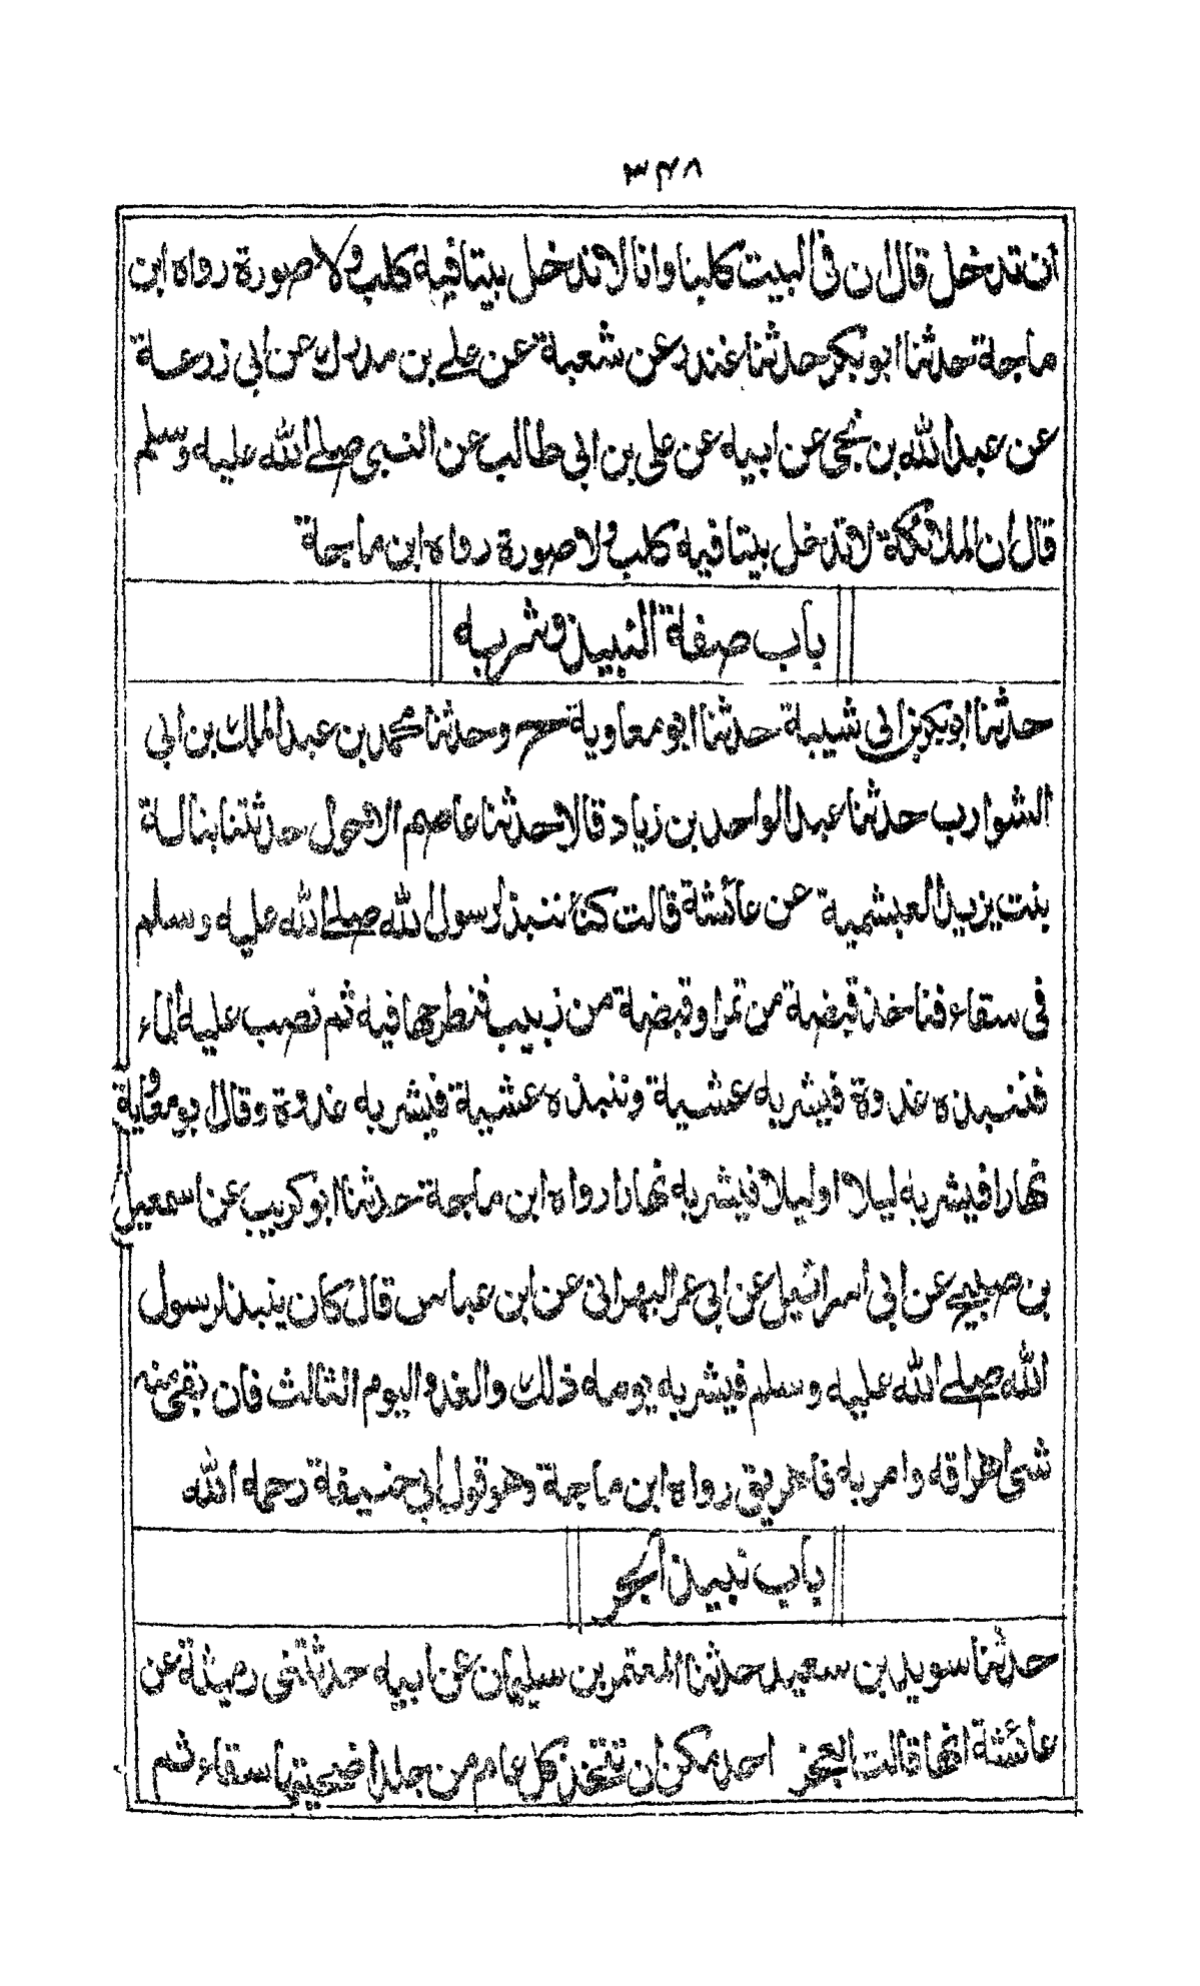 ۳۴۸
ان تدخل قال ان فى البيت كلبا وانا لا ندخل بيتا فيه كلب ولا صورة رواه ابن
ماجة حدثنا ابو بكر حدثنا غندر عن شعبة عن على بن مدرك عن ابى زرعة
عن عبد الله بن نجى عن ابيه عن على بن ابى طالب عن النبى صلى الله عليه وسلم
قال ان الملائكة لا تدخل بيتا فيه كلب ولا صورة رواه ابن ماجة
باب صفة النبيذ وشربه
حدثنا ابو بكر بن ابى شيبة حدثنا ابو معاوية ح وحدثنا محمد بن عبد الملك بن ابى
الشوارب حدثنا عبد الواحد بن زياد قالا حدثنا عاصم الاحول حدثتنا بنالة
بنت يزيد العبشمية عن عائشة قالت كنا ننبذ لرسول الله صلى الله عليه وسلم
فى سقاء فناخذ قبضة من تمر او قبضة من زبيب فنطرحها فيه ثم نصب عليه الماء
فننبذه غدوة فيشربه عشية وننبذه عشية فيشربه غدوة وقال ابو معاوية
نهارا فيشربه ليلا او ليلا فيشربه نهارا رواه ابن ماجة حدثنا ابو كريب عن اسمعيل
بن صبيح عن ابى اسرائيل عن ابى عمر البهرانى عن ابن عباس قال كان ينبذ لرسول
الله صلى الله عليه وسلم فيشربه يومه ذلك والغد واليوم الثالث فان بقى منه
شئ اهراقه وامر به فاهريق رواه ابن ماجة وهو قول ابى حنيفة رحمه الله
باب نبيذ الجر
حدثنا سويد بن سعيد حدثنا المعتمر بن سليمان عن ابيه حدثتنى رميثة عن
عائشة انها قالت اتعجز احدىكن ان تتخذ كل عام من جلد اضحيتها سقاء ثم